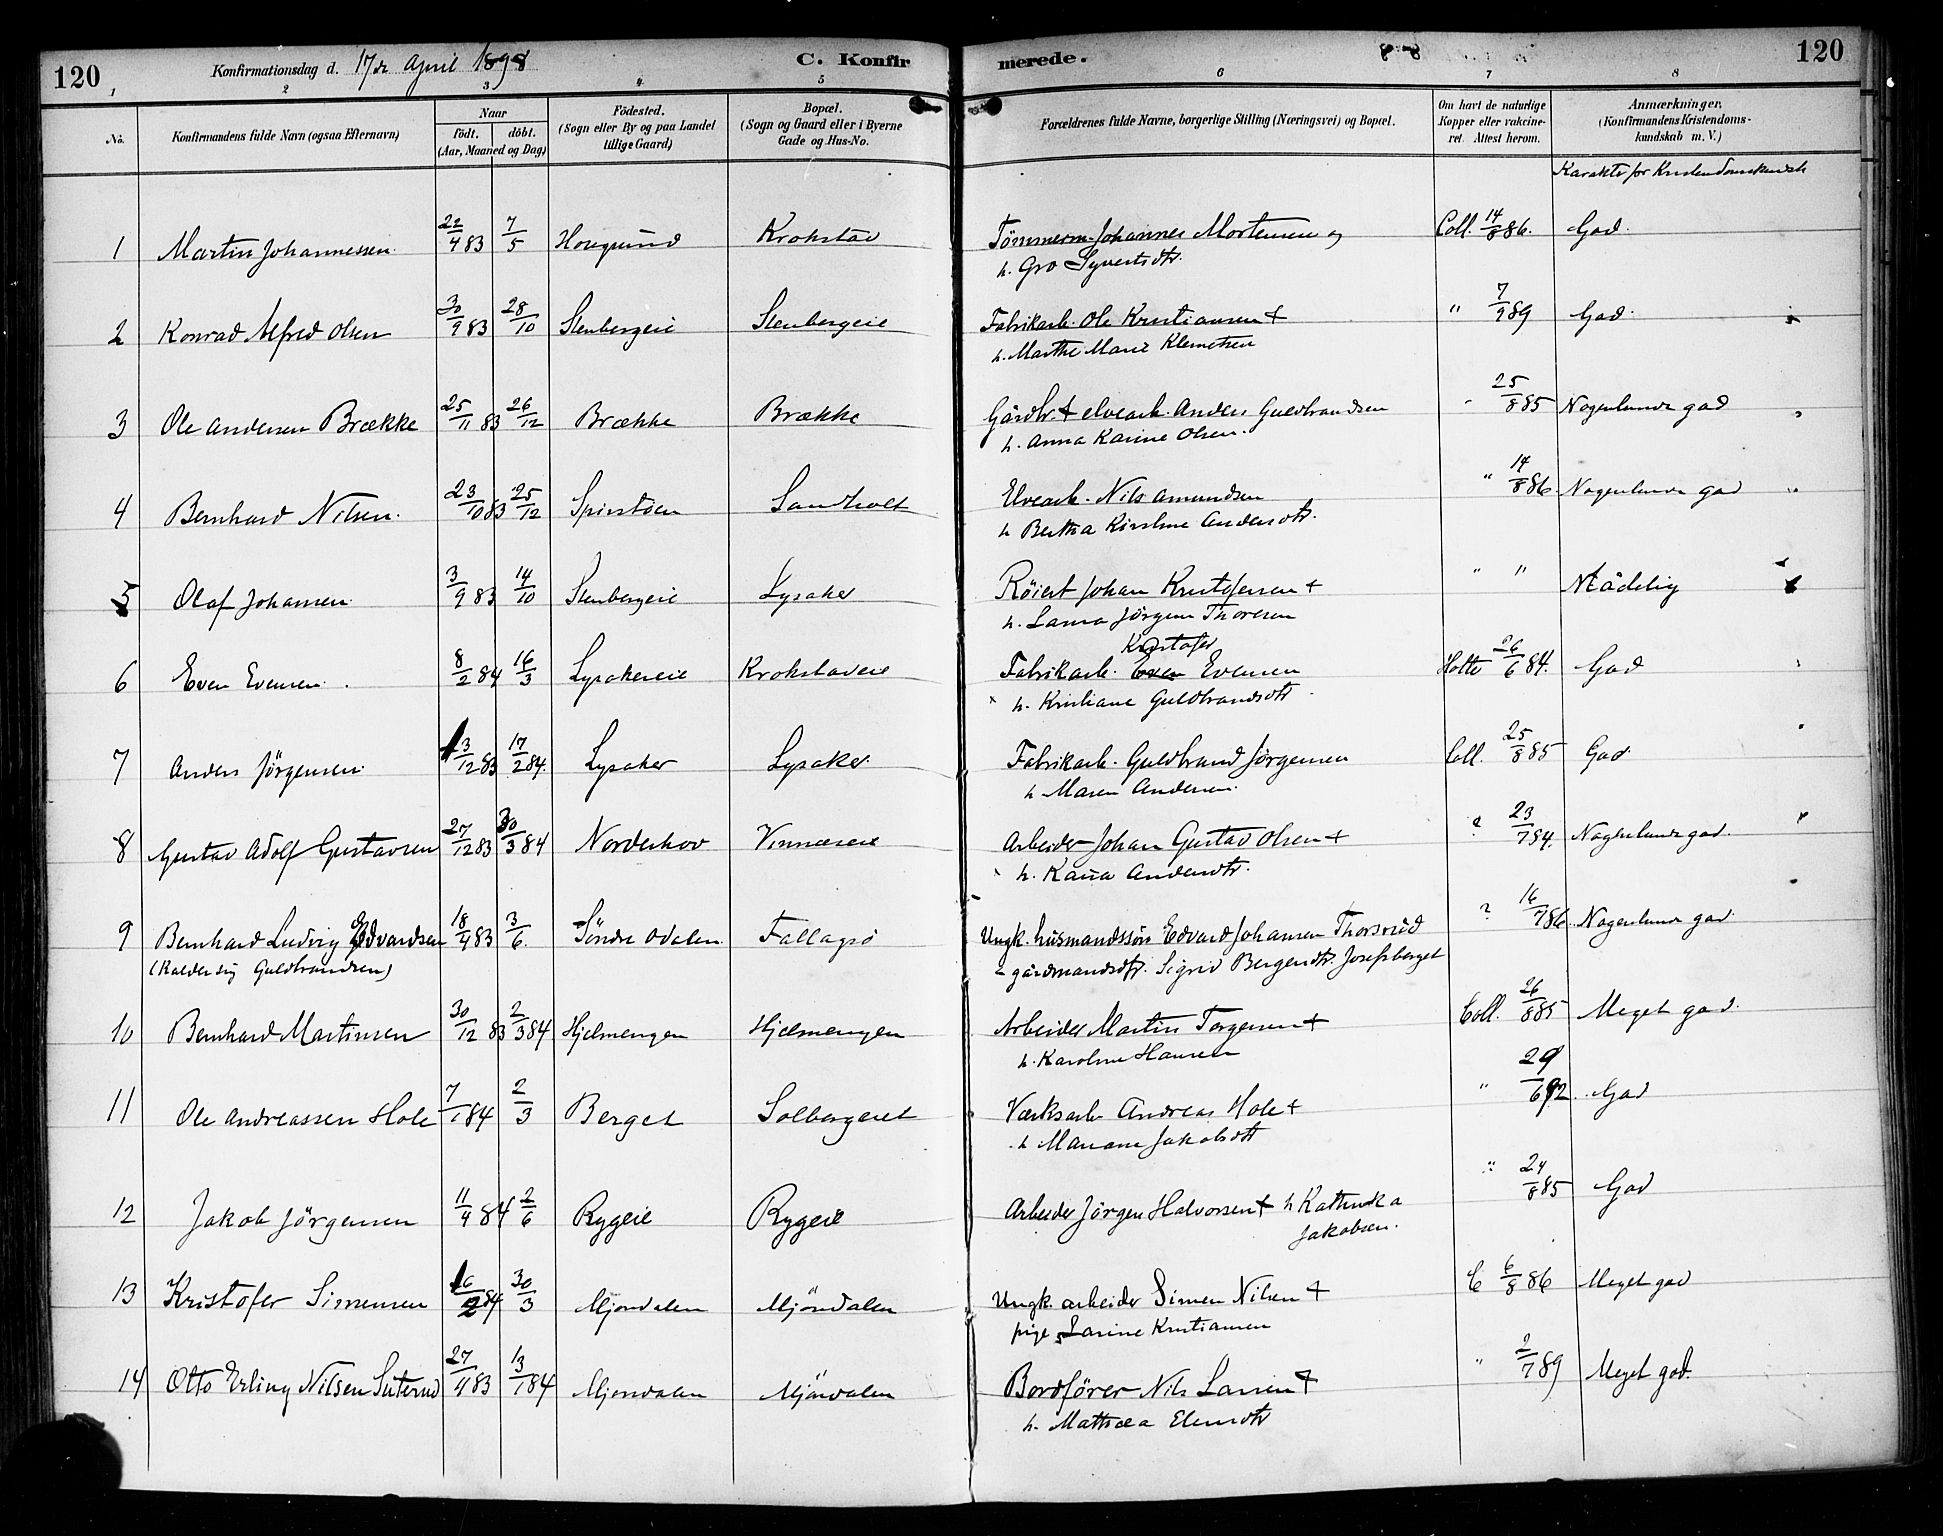 120
Konfirmationsdag d. 17de April 1898
C. Konfirmerede.
120
1 2 3 4 5 6 7 8
No.
Konfirmandens fulde Navn (ogsaa Efternavn)
Naar
födt. döbt.
(Aar, Maaned og Dag)
Födested.
(Sogn eller By og paa Landet
tillige Gaard)
Bopæl.
(Sogn og Gaard eller i Byerne
Gade og Hus-No.
Forældrenes fulde Navne, borgerlige Stilling (Næringsvei) og Bopæl.
Om havt de naturlige
Kopper eller vakcine-
ret. Attest herom.
Anmærkninger.
(Konfirmandens Kristendoms-
kundskab m. V.)
Karakter for Kristendomskundsk
1 Martin Johannessen 22/4 83 7/5 Hougsund Krokstad Tömmerm. Johannes Mortensen og Coll. 14/8 86. God.
h. Gro Syvertsdtr.
2 Konrad Alfred Olsen 30/9 83 28/10 Stenbergeie Stenbergeie Fabrikarb. Ole Kristiansen + " 7/9 89 God.
h. Marthe Marie Klemetsen
3 Ole Andersen Brække 25/11 83 26/12 Brække Brække Gårdbr. + elvearb. Anders Guldbrandsen " 25/8 85 Nogenlunde god
h. Anna Karine Olsen.
4 Bernhard Nilsen. 23/10 83 25/12 Sandholt Elvearb. Nils Amundsen " 14/8 86 Nogenlunde god
h Bertha Kirstine Andersdtr.
5 Olaf Johansen 3/9 83 14/10 Stenbergeie Lysaker Röiert Johan Kristofersen + " " Mådelig
h. Laura Jörgine Thoresen
Kristofer
6 Even Evensen. 8/2 84 16/3 Lysakereie Krokstadeie Fabrikarb. Even Evensen Holte 26/6 84. God
h. Kristiane Guldbrandsdtr
7 Anders Jörgensen 13/12 83 17/2 84. Lysaker Lysaker Fabrikarb. Guldbrand Jörgensen Coll. 25/8 85 God
h Maren Andersen.
8 Gustav Adolf Gustavsen 27/12 83 30/3 84 Norderhov Vinnæseie Arbeider Johan Gustav Olsen + ? 23/7 84. Nogenlunde god.
h. Kaisa Andersdtr.
9 Bernhard Ludvig Edvardsen 18/4 83 3/6. Söndre Odalen. Fallagsö Ungk. husmandssön Edvard Johansen Thorsrud ? 16/7 86. Nogenlunde god.
(Kalder sig Guldbrandsen) gårdmandsdtr. Sigrid Bergersdtr. Josefsberget
10 Bernhard Martinsen 30/12 83 2/3 84 Hjelmengen Hjelmengen Arbeider Martin Torgersen + Coll. 26/8 85 Meget god.
h. Karoline Hansen
11 Ole Andreassen Hole 7/1 84 2/3 Berget Solbergeiet Værksarb Andreas Hole + " 29/6 92. God
h Mariane Jakobsdtr
12 Jakob Jörgensen 11/4 84 2/6 Rygeie Rygeie Arbeider Jörgen Halvorsen + h Kathinka " 24/8 85 God
Jakobsen.
13 Kristofer Simensen 16/2 84 30/3 Mjöndalen Mjöndalen Ungk. arbeider Simen Nilsen + C 6/8 86 Meget god
pige Larine Kristiansen
14 Otto Erling Nilsen Seterud 27/11 83 13/1 84 Mjöndalen Mjöndalen Bordförer Nils Larsen + " 2/7 89 Meget god.
h. Mathea Elensdtr